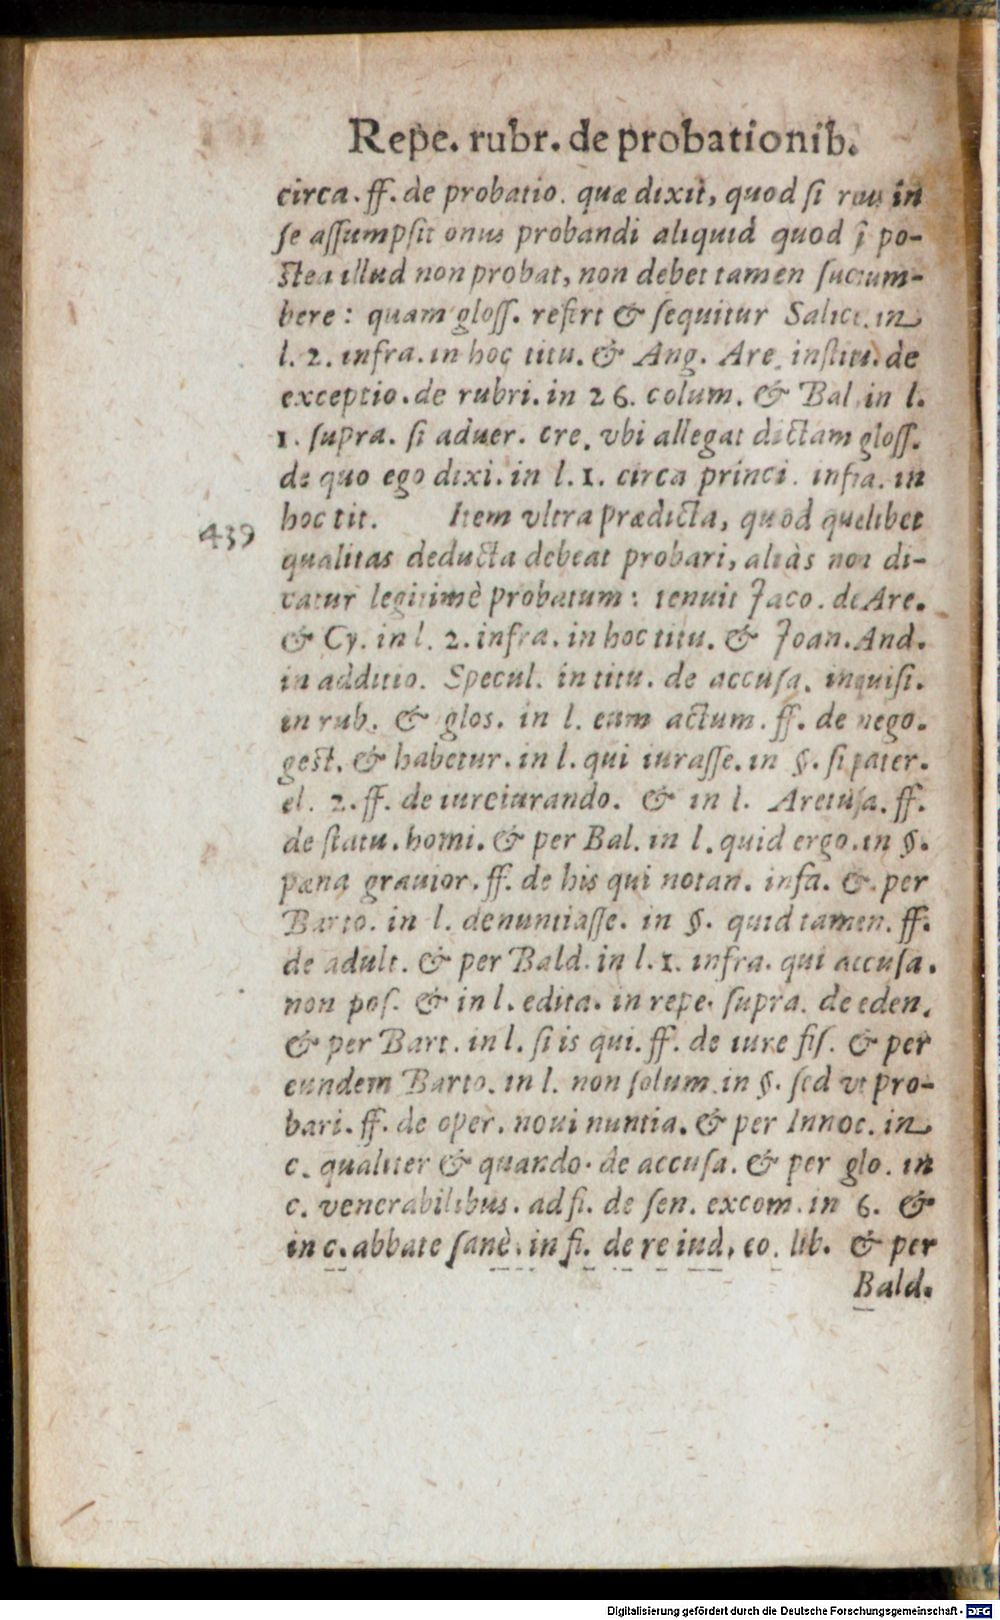 Repe. rubr. de probationib.
circa. ff. de probatio. quæ dixit, quod si reus in
se assumpsit onus probandi aliquid quod si po-
stea illud non probat, non debet tamen succum-
bere: quam gloss. refert & sequitur Salicet. in
l. 2. infra. in hoc titu. & Ang. Are. institu. de
exceptio. de rubri. in 26. colum. & Bal. in l.
1. supra. si aduer. cre. vbi allegat dictam gloss.
de quo ego dixi. in l. 1. circa princi. infra. in
439 hoc tit. Item vltra prædicta, quod quælibet
qualitas deducta debeat probari, aliàs non di-
catur legitimè probatum: tenuit Jaco. de Are.
& Cy. in l. 2. infra. in hoc titu. & Joan. And.
in additio. Specul. in titu. de accusa. inquisi.
in rub. & glos. in l. eum actum. ff. de nego.
gest. & habetur. in l. qui iurasse. in §. si pater.
el. 2. ff. de iureiurando. & in l. Aretusa. ff.
de statu. homi. & per Bal. in l. quid ergo. in §.
pæna grauior. ff. de his qui notan. infa. & per
Barto. in l. denuntiasse. in §. quid tamen. ff.
de adult. & per Bald. in l. 1. infra. qui accusa.
non pos. & in l. edita. in repe. supra. de eden.
& per Bart. in l. si is qui. ff. de iure fis. & per
eundem Barto. in l. non solum. in §. sed vt pro-
bari. ff. de oper. noui nuntia. & per Innoc. in
c. qualiter & quando. de accusa. & per glo. in
c. venerabilibus. ad fi. de sen. excom. in 6. &
in c. abbate sanè. in fi. de re iud. eo. lib. & per
Bald.
Digitalisierung gefördert durch die Deutsche Forschungsgemeinschaft - DFG